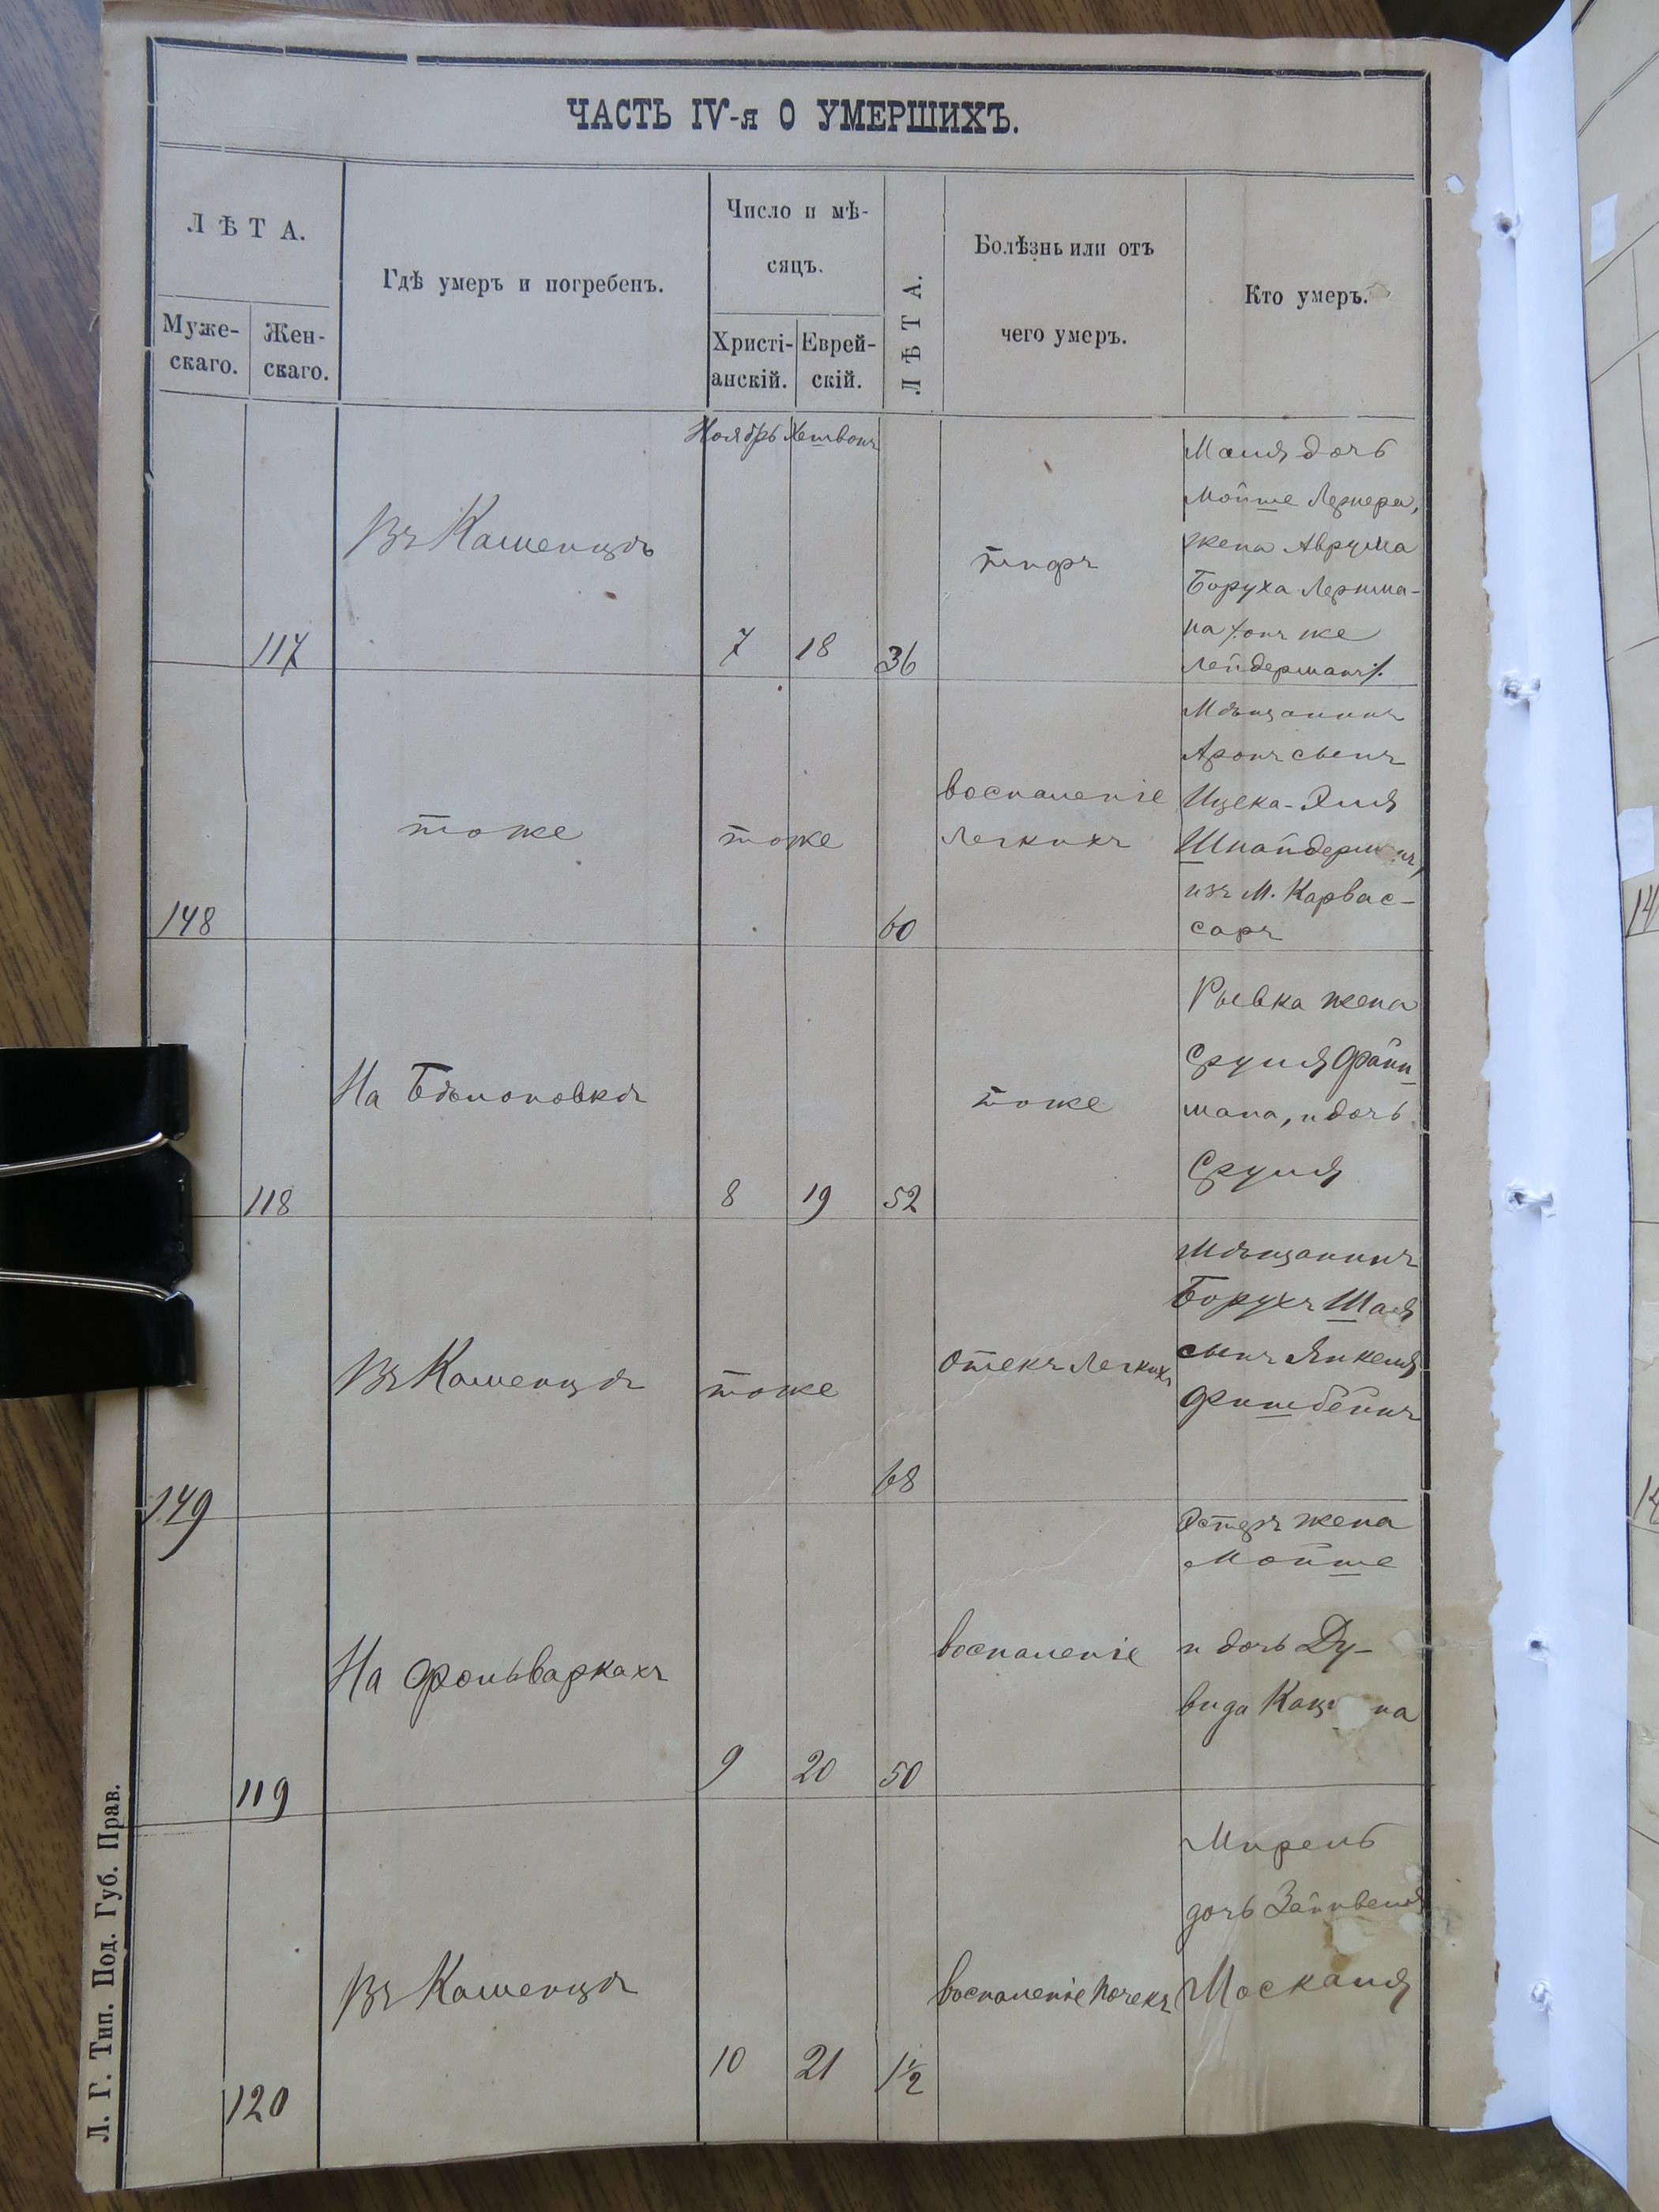 ЧАСТЬ IV-я О УМЕРШИХЪ.
ЛѢТА.
Муже-
скаго.
Жен-
скаго.
Гдѣ умеръ и погребенъ.
Число и мѣ-
сяцъ.
Христі-
анскій.
Еврей-
скій.
ЛѢТА.
Болѣзнь или отъ
чего умеръ.
Кто умеръ.
Ноябрь Хешвонъ
117
Въ Каменцѣ
7
18
36
тифъ
дочь
Мойше Лернера,
жена Аврума
Боруха Лерима-
на /: онъ же
Лейдерманъ :/.
148
тоже
тоже
60
воспаленіе
легкихъ
Мѣщанинъ
Аронъ сынъ
Ицека-Эля
из М. Карвас-
саръ
118
На Бѣлановкѣ
8
19
52
тоже
Рывка жена
Сруля Файн-
мана, и дочь
Сруля
149
Въ Каменцѣ
тоже
68
Отекъ легкихъ
Мѣщанинъ
Борухъ Шая
сынъ Янкеля
Фишбейнъ
119
На Фольваркахъ
9
20
50
воспаленіе
Эстеръ жена
Мойше
и дочь Ду-
вида
120
Въ Каменцѣ
10
21
1½
воспаленіе почекъ
Мирель
дочь Зейнвеля
Москаля
Л. Г. Тип. Под. Губ. Прав.